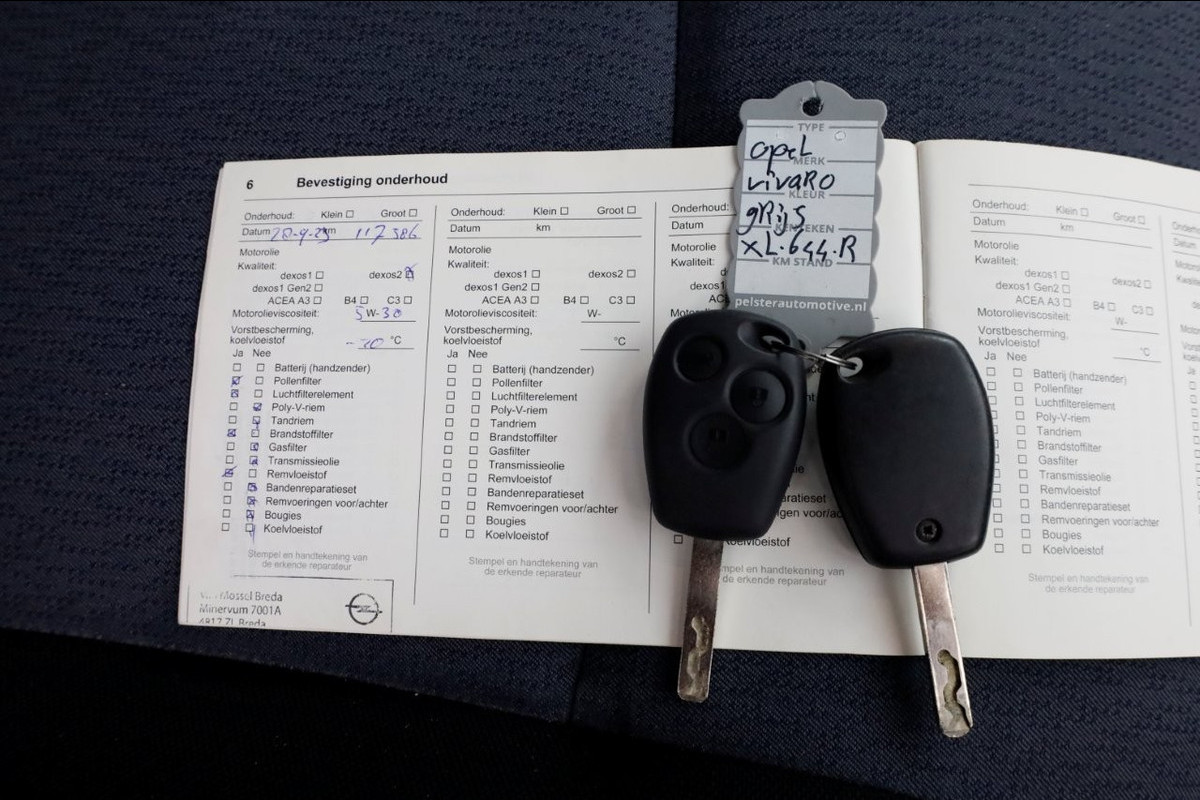 6 Bevestiging onderhoud
Onderhoud: Klein Groot
Datum km 117386
Motorolie
Kwaliteit:
dexos1 dexos2
dexos1 Gen2
ACEA A3 B4 C3
Motorolieviscositeit: 5 W-30
Vorstbescherming,
koelvloeistof -30 °C
Ja Nee
Batterij (handzender)
Pollenfilter
Luchtfilterelement
Poly-V-riem
Tandriem
Brandstoffilter
Gasfilter
Transmissieolie
Remvloeistof
Bandenreparatieset
Remvoeringen voor/achter
Bougies
Koelvloeistof
Stempel en handtekening van
de erkende reparateur
Mossel Breda
Minervum 7001A
4817 ZL Breda
Onderhoud: Klein Groot
Datum km
Motorolie
Kwaliteit:
dexos1 dexos2
dexos1 Gen2
ACEA A3 B4 C3
Motorolieviscositeit: W-
Vorstbescherming,
koelvloeistof °C
Ja Nee
Batterij (handzender)
Pollenfilter
Luchtfilterelement
Poly-V-riem
Tandriem
Brandstoffilter
Gasfilter
Transmissieolie
Remvloeistof
Bandenreparatieset
Remvoeringen voor/achter
Bougies
Koelvloeistof
Stempel en handtekening van
de erkende reparateur
Onderhoud:
Datum
Motorolie
Kwaliteit:
TYPE
OpeL
MERK
VivaRO
KLEUR
gRijs
KENTEKEN
XL-644-R
KM STAND
pelsterautomotive.nl
Onderhoud: Klein Groot
Datum km
Motorolie
Kwaliteit:
dexos1 dexos2
dexos1 Gen2
ACEA A3 B4 C3
Motorolieviscositeit: W-
Vorstbescherming,
koelvloeistof °C
Ja Nee
Batterij (handzender)
Pollenfilter
Luchtfilterelement
Poly-V-riem
Tandriem
Brandstoffilter
Gasfilter
Transmissieolie
Remvloeistof
Bandenreparatieset
Remvoeringen voor/achter
Bougies
Koelvloeistof
Stempel en handtekening van
de erkende reparateur